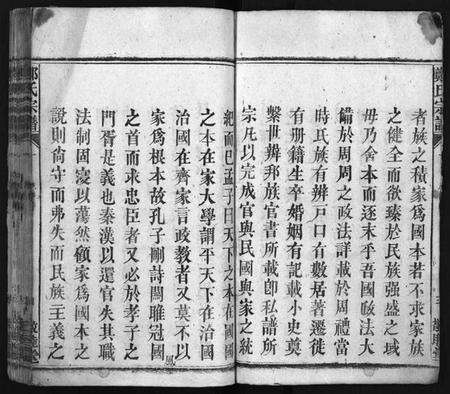 者族之積家爲國本若不求家族
之健全而欲臻於民族强盛之域
毋乃舍本而逐末乎吾國政法大
備於周周之政法詳載於周禮當
時氏族有辨戸口有數居著遷徙
有册籍生卒婚姻有記載小史奠
繫世辨邦族官書所載卽私譜所
宗凡以完成官與民國與家之統
紀而已孟子曰天下之本在國國
之本在家大學謂平天下在治國
治國在齊家言政敎者又莫不以
家爲根本故孔子刪詩關雎冠國
風
之首而求忠臣者又必於孝子之
門胥是義也秦漢以還官失其職
法制固寖以蕩然顧家爲國本之
說則尙守而弗失而民族主義之
鄭氏宗譜
鄭氏宗譜